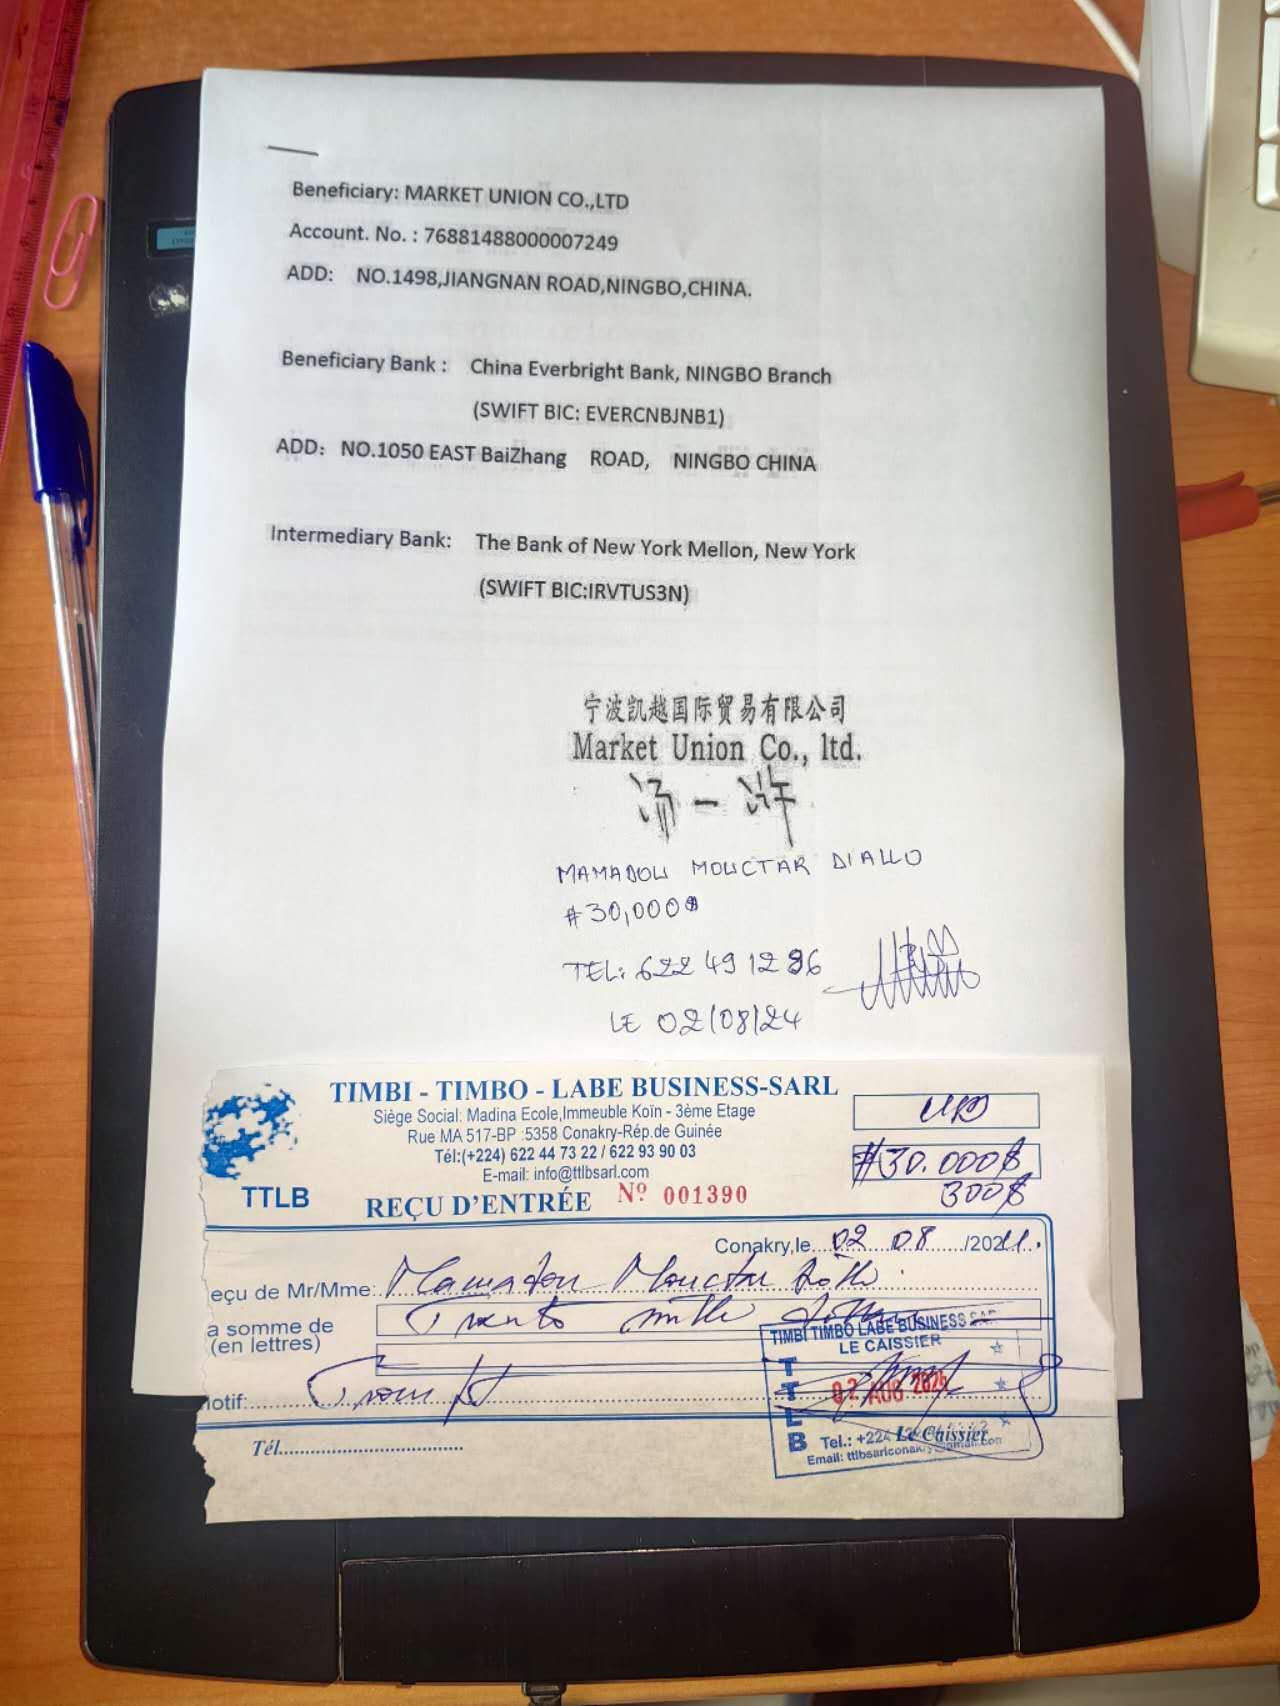 Beneficiary: MARKET UNION CO.,LTD
Account. No. : 76881488000007249
ADD: NO.1498,JIANGNAN ROAD,NINGBO,CHINA.
Beneficiary Bank : China Everbright Bank, NINGBO Branch
(SWIFT BIC: EVERCNBJNB1)
ADD: NO.1050 EAST BaiZhang ROAD, NINGBO CHINA
Intermediary Bank: The Bank of New York Mellon, New York
(SWIFT BIC:IRVTUS3N)
宁波凯越国际贸易有限公司
Market Union Co., ltd.
MAMADOU MOUCTAR DIALLO
#30,000$
TEL: 622 49 12 96
LE 02/08/24
TIMBI - TIMBO - LABE BUSINESS-SARL
Siège Social: Madina Ecole,Immeuble Koïn - 3ème Etage
Rue MA 517-BP :5358 Conakry-Rép.de Guinée
Tél:(+224) 622 44 73 22 / 622 93 90 03
E-mail: info@ttlbsarl.com
TTLB
REÇU D'ENTRÉE Nº 001390
#30.000$
300$
Conakry,le 02 08 /2024.
eçu de Mr/Mme: Mamadou Mouctar
a somme de Trente mille
(en lettres)
otif:
Tél.
TIMBI TIMBO LABE BUSINESS SARL
LE CAISSIER
TTLB
02 AUG
Le Caissier
Tel.: +224
Email: ttlbsarlconakry@gmail.com